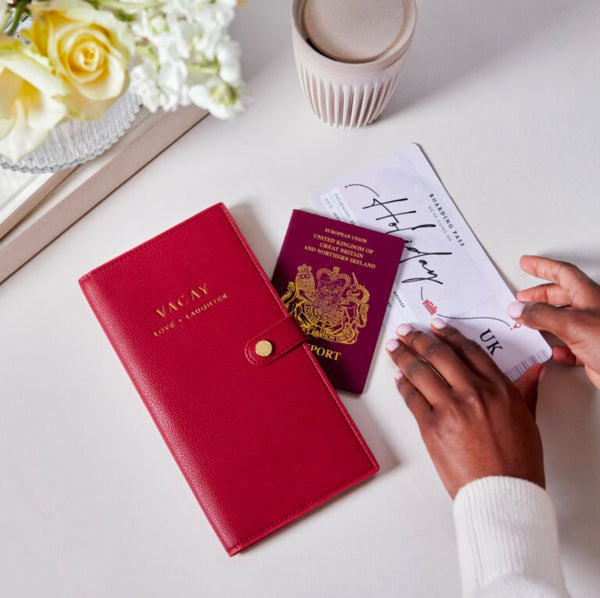 VACAY
LOVE + LAUGHTER
EUROPEAN UNION
UNITED KINGDOM OF
GREAT BRITAIN
AND NORTHERN IRELAND
PORT
BOARDING PASS
WE'RE GOING ON
Holiday
UK